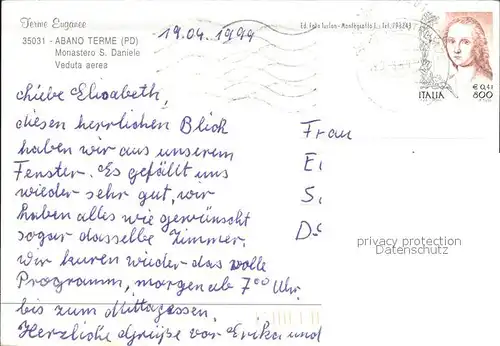 Terme Euganee
35031 - ABANO TERME (PD)
Monastero S. Daniele
Veduta aerea
19.04.1999
ITALIA
€ 0,41
800
Liebe Elisabeth,
diesen herrlichen Blick
haben wir aus unserem
Fenster. Es gefällt uns
wieder sehr gut, wir
haben alles wie gewünscht
sogar dasselbe Zimmer.
Wir kuren wieder das volle
Programm, morgen ab 7⁰⁰ Uhr
bis zum Mittagessen.
Herzliche Grüße von Erika und
Frau
privacy protection
Datenschutz